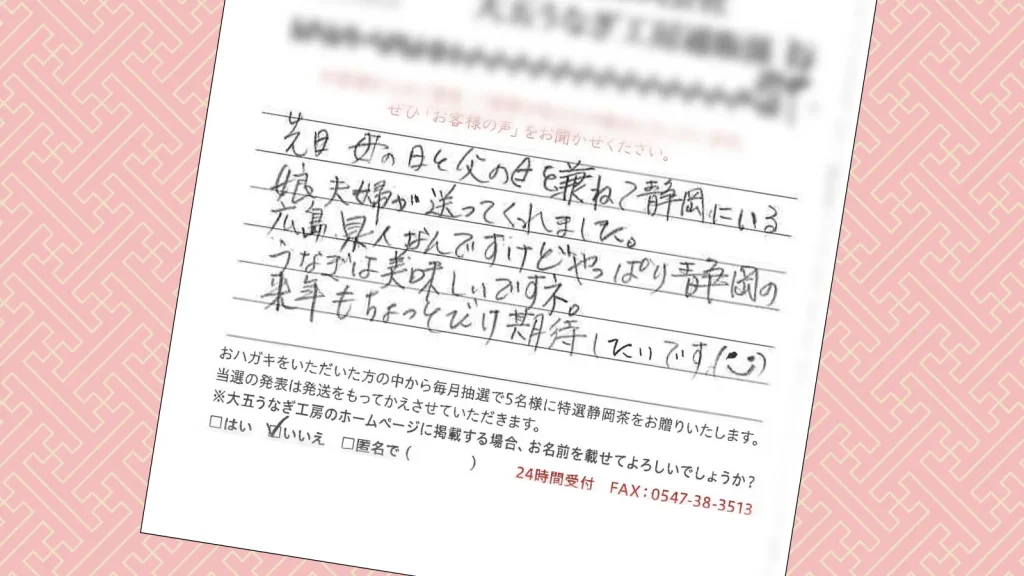 大五うなぎ工房通販部 行
ぜひ「お客様の声」をお聞かせください。
先日 母の日と父の日を兼ねて静岡にいる
娘夫婦が送ってくれました。
広島県人なんですけどやっぱり静岡の
うなぎは美味しいですネ。
来年もちょっとだけ期待したいです(
おハガキをいただいた方の中から毎月抽選で5名様に特選静岡茶をお贈りいたします。
当選の発表は発送をもってかえさせていただきます。
※大五うなぎ工房のホームページに掲載する場合、お名前を載せてよろしいでしょうか？
□はい ☑いいえ □匿名で（ ）
24時間受付 FAX：0547-38-3513